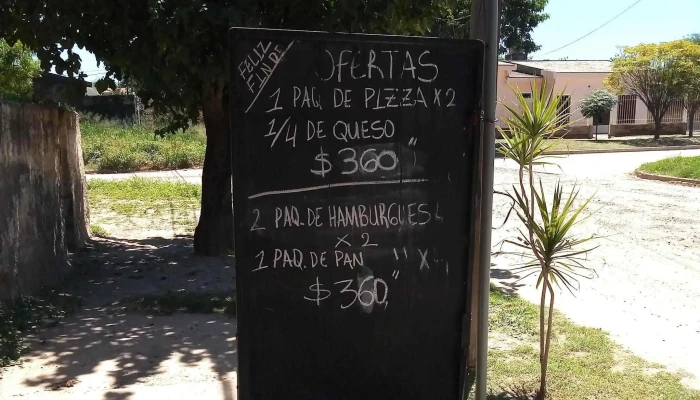 FELIZ
FINDE
OFERTAS
1 PAQ. DE PIZZA X 2
1/4 DE QUESO
$360"
2 PAQ. DE HAMBURGUES
X 2
1 PAQ. DE PAN " X
$360,"